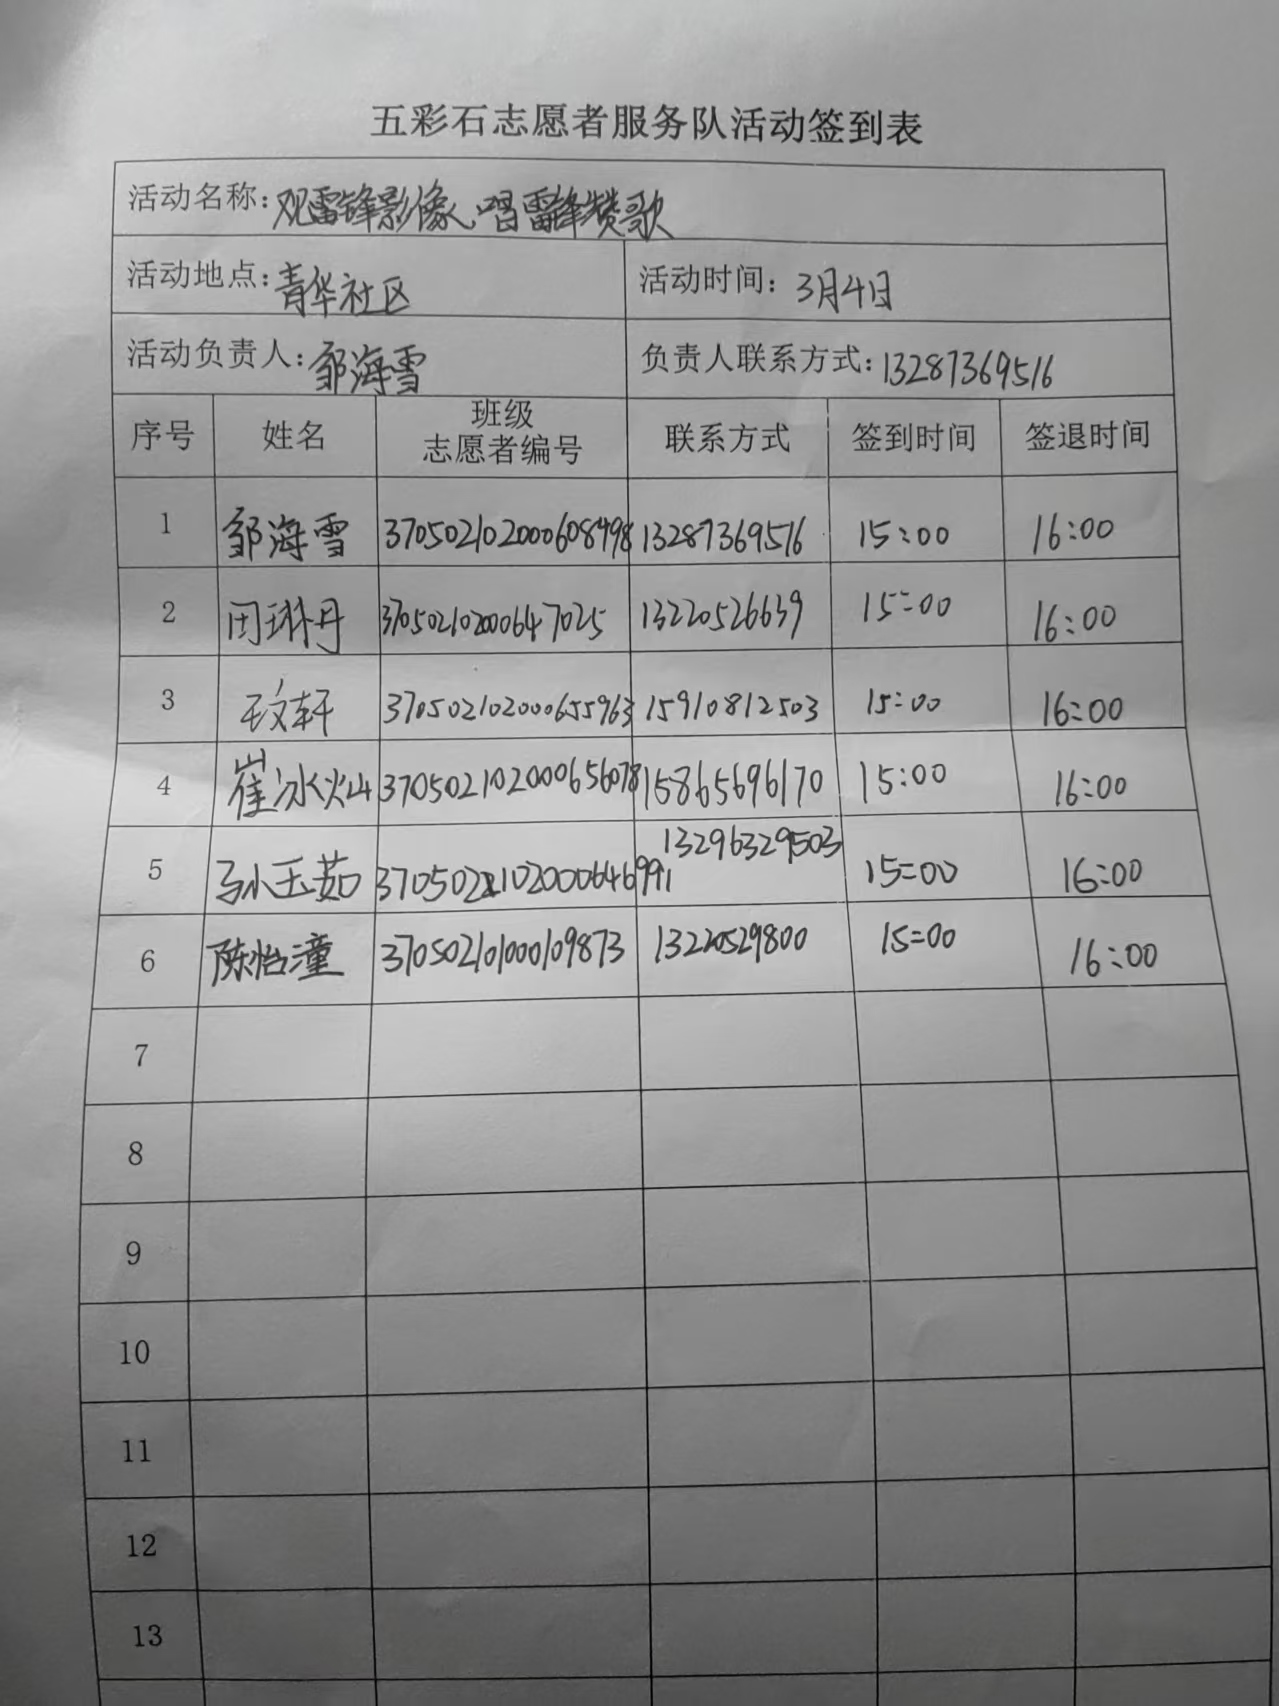 五彩石志愿者服务队活动签到表
活动名称: 观雷锋影像、唱雷锋赞歌
活动地点: 青华社区 活动时间: 3月4日
活动负责人: 邹海雪 负责人联系方式: 13287369516
序号 姓名 班级 志愿者编号 联系方式 签到时间 签退时间
1 邹海雪 370502102000608498 13287369516 15:00 16:00
2 闵琳丹 370502102000647025 13220526639 15:00 16:00
3 王文轩 370502102000655963 15910812503 15:00 16:00
4 崔冰灿 370502102000656078 15865696170 15:00 16:00
5 孙玉茹 370502102000646991 13296329503 15:00 16:00
6 陈怡潼 370502101000109873 13220529800 15:00 16:00
7
8
9
10
11
12
13